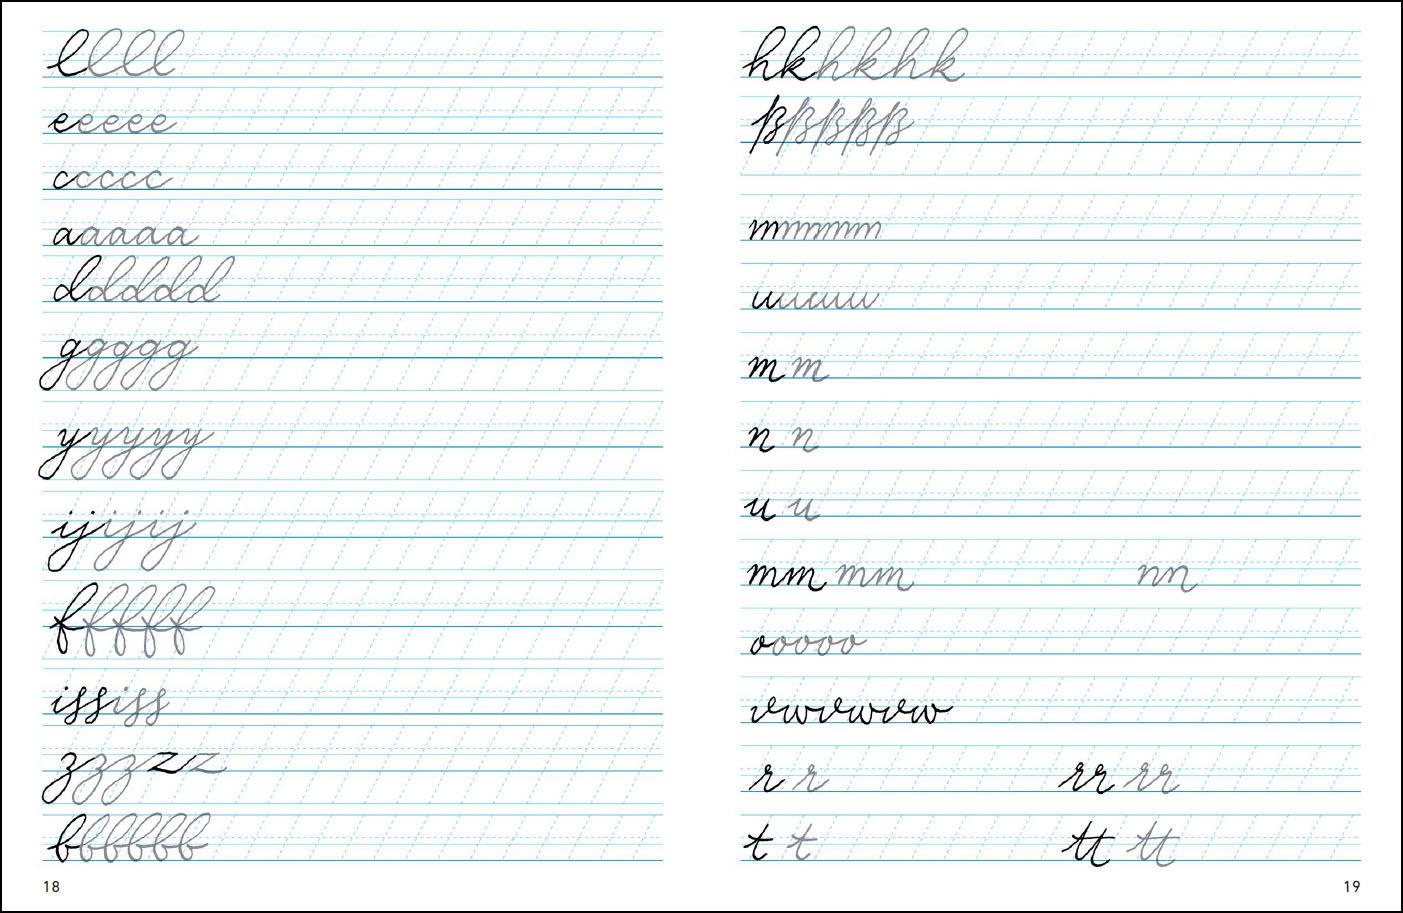 llll
eeeee
ccccc
aaaaa
ddddd
ggggg
yyyyy
ijijij
fffff
ississ
zzz z z
bbbbbb
18
hkhkhk
ßßßßß
mmmmm
uuuuu
m m
n n
u u
mm mm nn
ooooo
vwvwvw
r r rr rr
t t tt tt
19